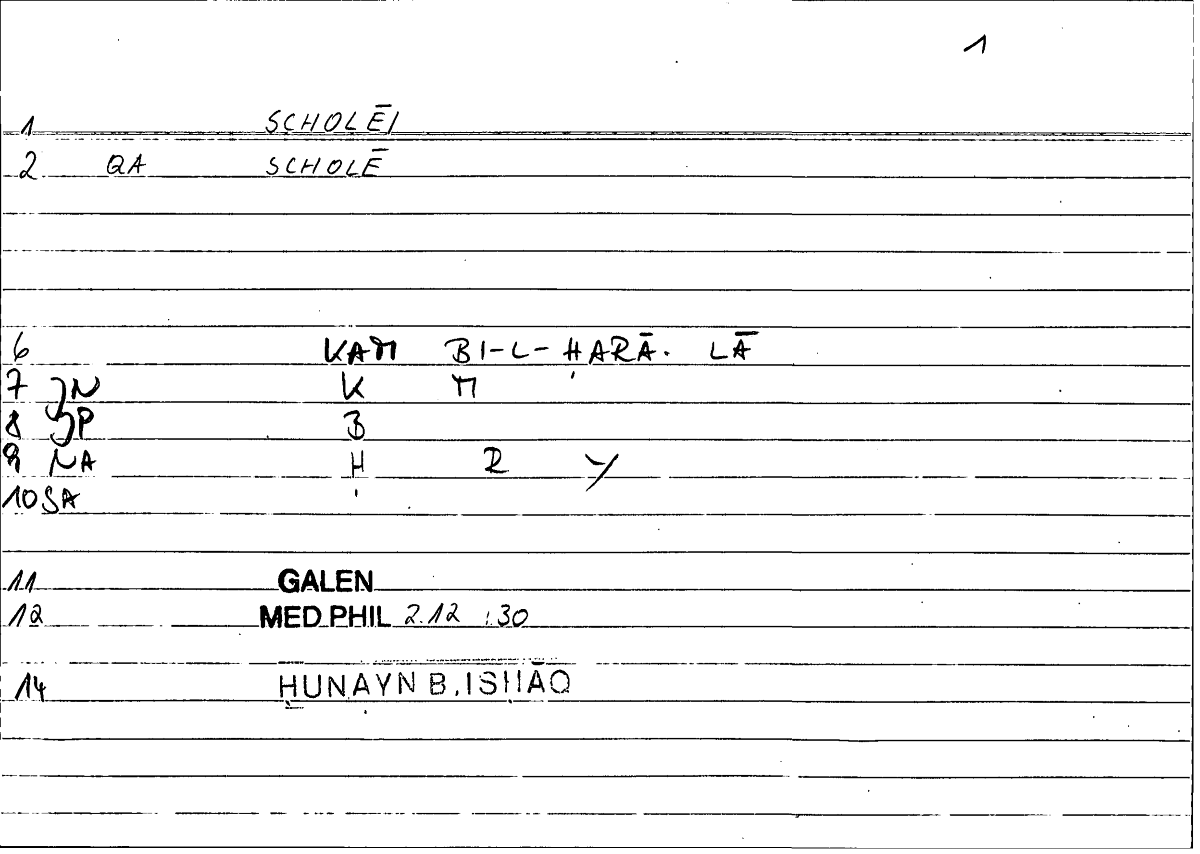 1
1 SCHOLĒI
2 QA SCHOLĒ
6 KAM BI-L-ḤARĀ. LĀ
7 JN K M
8 JP B
9 NA Ḥ R Y
10 SA
11 GALEN
12 MED PHIL 2.12 :30
14 ḤUNAYN B. ISḤĀQ